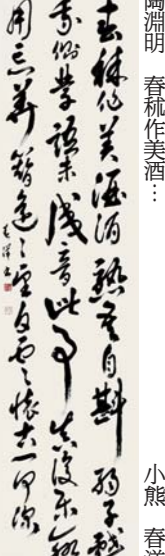 陶淵明　春秫作美酒…　小熊　春
春秫作美酒酒熟吾自斟弱子戲
我側學語未成音此事真復樂聊
用忘華簪遙々望白雲懷古一何深